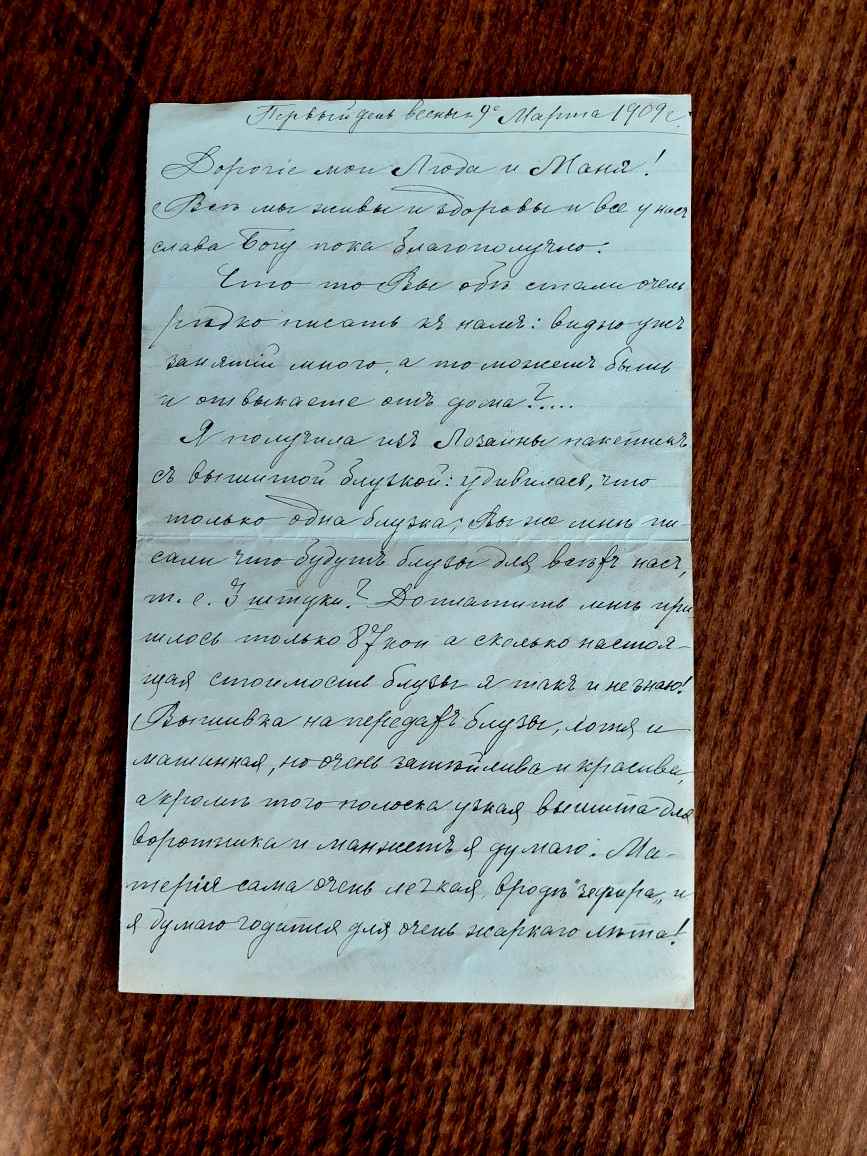 Первый день весны 9е Марта 1909 г.
Дорогіе мои Люда и Маня!
Всѣ мы живы и здоровы и все у насъ
слава Богу пока благополучно.
Что то Вы обѣ стали очень
рѣдко писать къ намъ: видно ужъ
занятій много, а то можетъ быть
и отвыкаете отъ дома?....
Я получила изъ Лозанны пакетикъ
съ вышитой блузкой: удивилась, что
только одна блузка; Вы же мнѣ пи-
сали что будутъ блузы для всѣхъ насъ,
т. е. 3 штуки? Доплатить мнѣ при
шлось только 87 коп а сколько настоя-
щая стоимость блузы я такъ и не знаю!
Вышивка на передахъ блузы, хотя и
машинная, но очень затѣйлива и красива,
а кромѣ того полоска узкая вышита для
воротника и манжетъ я думаю. Ма-
терія сама очень легкая, вродѣ "зефира", и
я думаю годится для очень жаркаго лѣта!